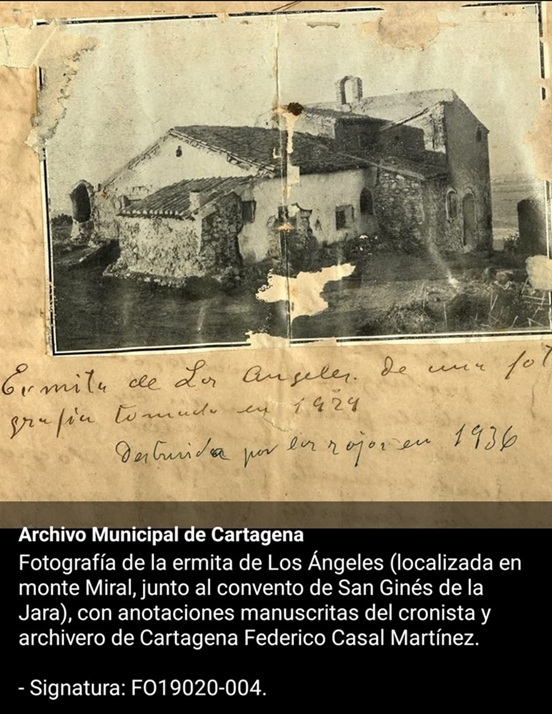 Ermita de Los Angeles. De una fot
grafía tomada en 1929
Destruida por los rojos en 1936
Archivo Municipal de Cartagena
Fotografía de la ermita de Los Ángeles (localizada en
monte Miral, junto al convento de San Ginés de la
Jara), con anotaciones manuscritas del cronista y
archivero de Cartagena Federico Casal Martínez.
- Signatura: FO19020-004.